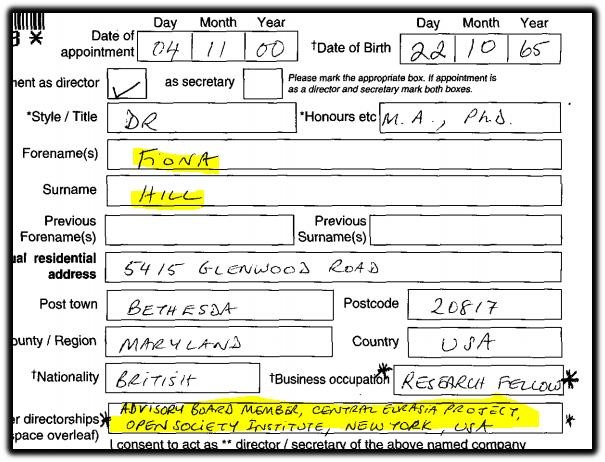 Day Month Year Day Month Year
8 *
Date of appointment 04 11 00 †Date of Birth 22 10 65
ment as director ✓ as secretary Please mark the appropriate box. If appointment is
as a director and secretary mark both boxes.
*Style / Title DR *Honours etc M.A., PhD.
Forename(s) FIONA
Surname HILL
Previous Forename(s) Previous Surname(s)
ual residential address 5415 GLENWOOD ROAD
Post town BETHESDA Postcode 20817
ounty / Region MARYLAND Country USA
†Nationality BRITISH †Business occupation* RESEARCH FELLOW *
er directorships * ADVISORY BOARD MEMBER, CENTRAL EURASIA PROJECT, *
space overleaf) OPEN SOCIETY INSTITUTE, NEW YORK, USA
I consent to act as ** director / secretary of the above named company